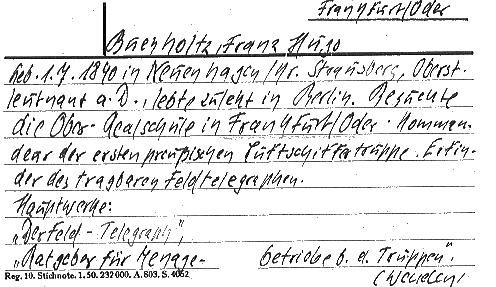 Frankfurt/Oder
Buchholtz, Franz Hugo
Geb. 1.7. 1840 in Neuenhagen/Kr. Strausberg, Oberst-
leutnant a.D., lebte zuletzt in Berlin. Besuchte
die Ober-Realschule in Frankfurt/Oder. Komman-
deur der ersten preußischen Luftschiffertruppe. Erfin-
der des tragbaren Feldtelegraphen.
Hauptwerke:
„Der Feld-Telegraph",
„Ratgeber für Menage-betriebe b. d. Truppen".
Reg. 10. Stichnote. 1. 50. 232000. A. 803. S. 4062